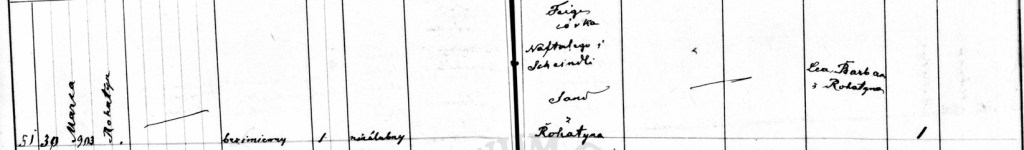 51 30 Marca 903 Rohatyn. bezimienny 1 nieślubny
Feige
córka
Naftalego i
Scheindli
Sand
z
Rohatyna
Lea Barban
z Rohatyna
1